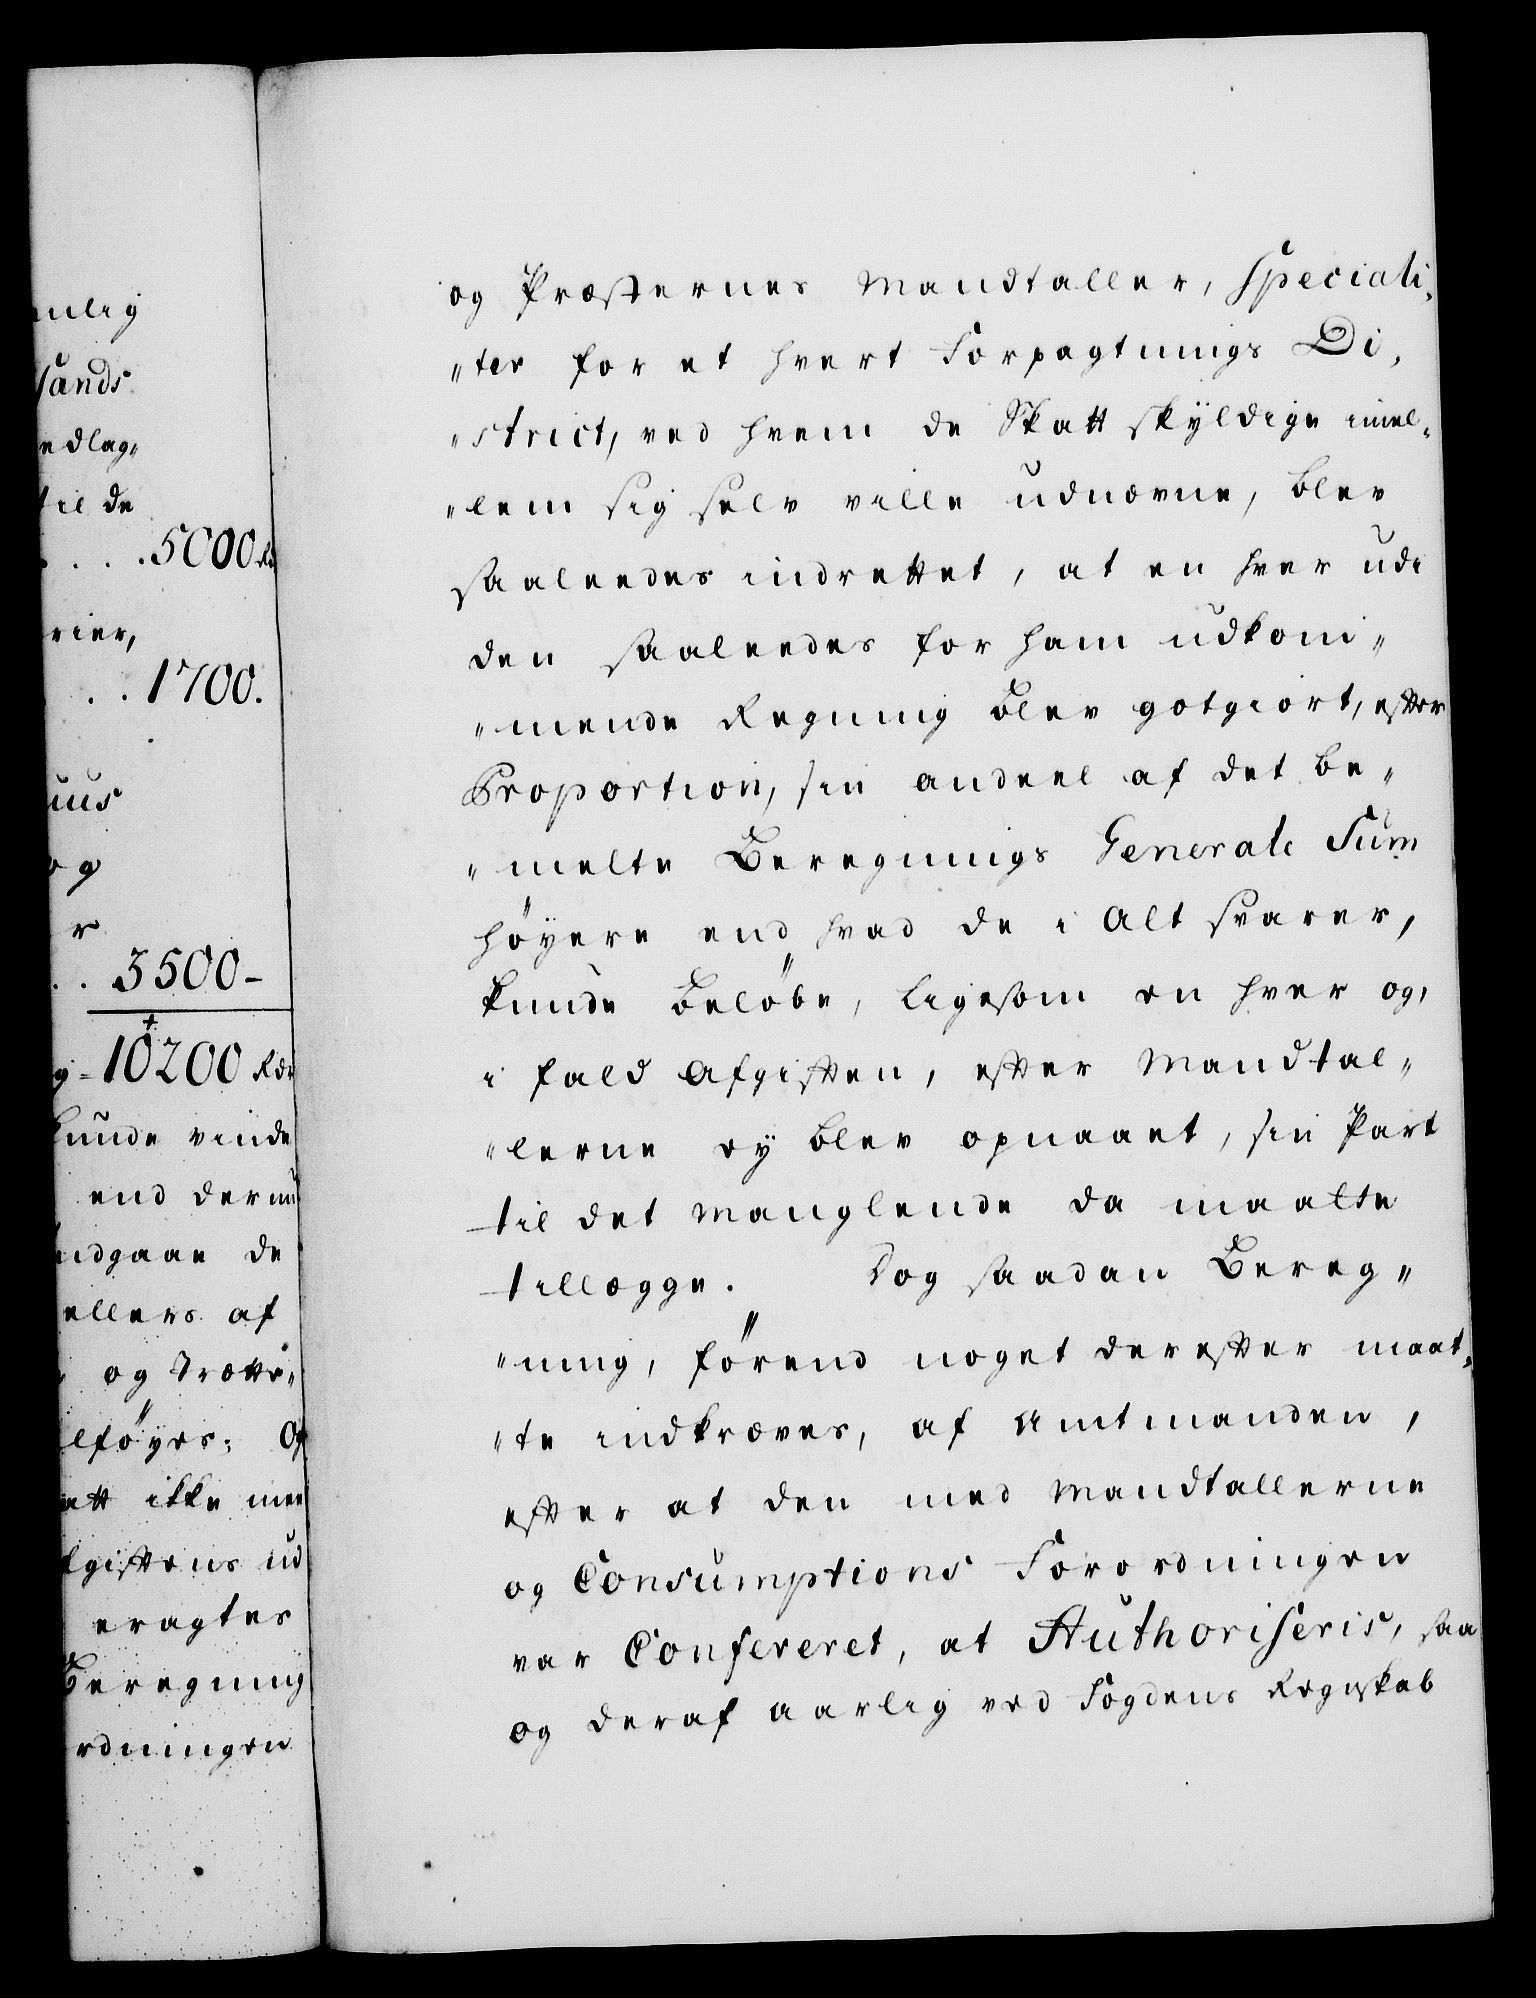 nlig
sands
edlag„
til de
. . . 5000 Rd
rier,
. . 1700.
uus
og
r
. . 3500-
10200 Rdr
kunde vinde
end der nu
indgaae de
ellers af
og Trætte„
lføyes; Og
att ikke mee
fgiftens ud
eragtes
Beregning
rdningen
og Præsternes Mandtaller, Speciali„
„ter for et hvert Forpagtnings Di„
„strict, ved hvem de Skatt skyldige imel„
„lem sig selv ville udnævne, blev
saaleedes indrettet, at en hver udi
den saaleedes for ham udkom„
„mende Regning blev gotgiort, efter
Proportion, sin andeel af det be„
„melte Beregnings Generale Sum
høyere end hvad de i Alt svarer,
kunde beløbe, ligesom en hver og,
i fald Afgiften, efter Mandtal„
„lerne ey blev opnaaet, sin Part
til det manglende da maatte
tillægge. Dog saadan Bereg„
„ning, førend noget derefter maat„
„te indkræves, af Amtmanden,
efter at den med Mandtallerne
og Consumptions Forordningen
var Confereret, at Authoriseris, saa
og deraf aarlig ved Fogdens Regnskab